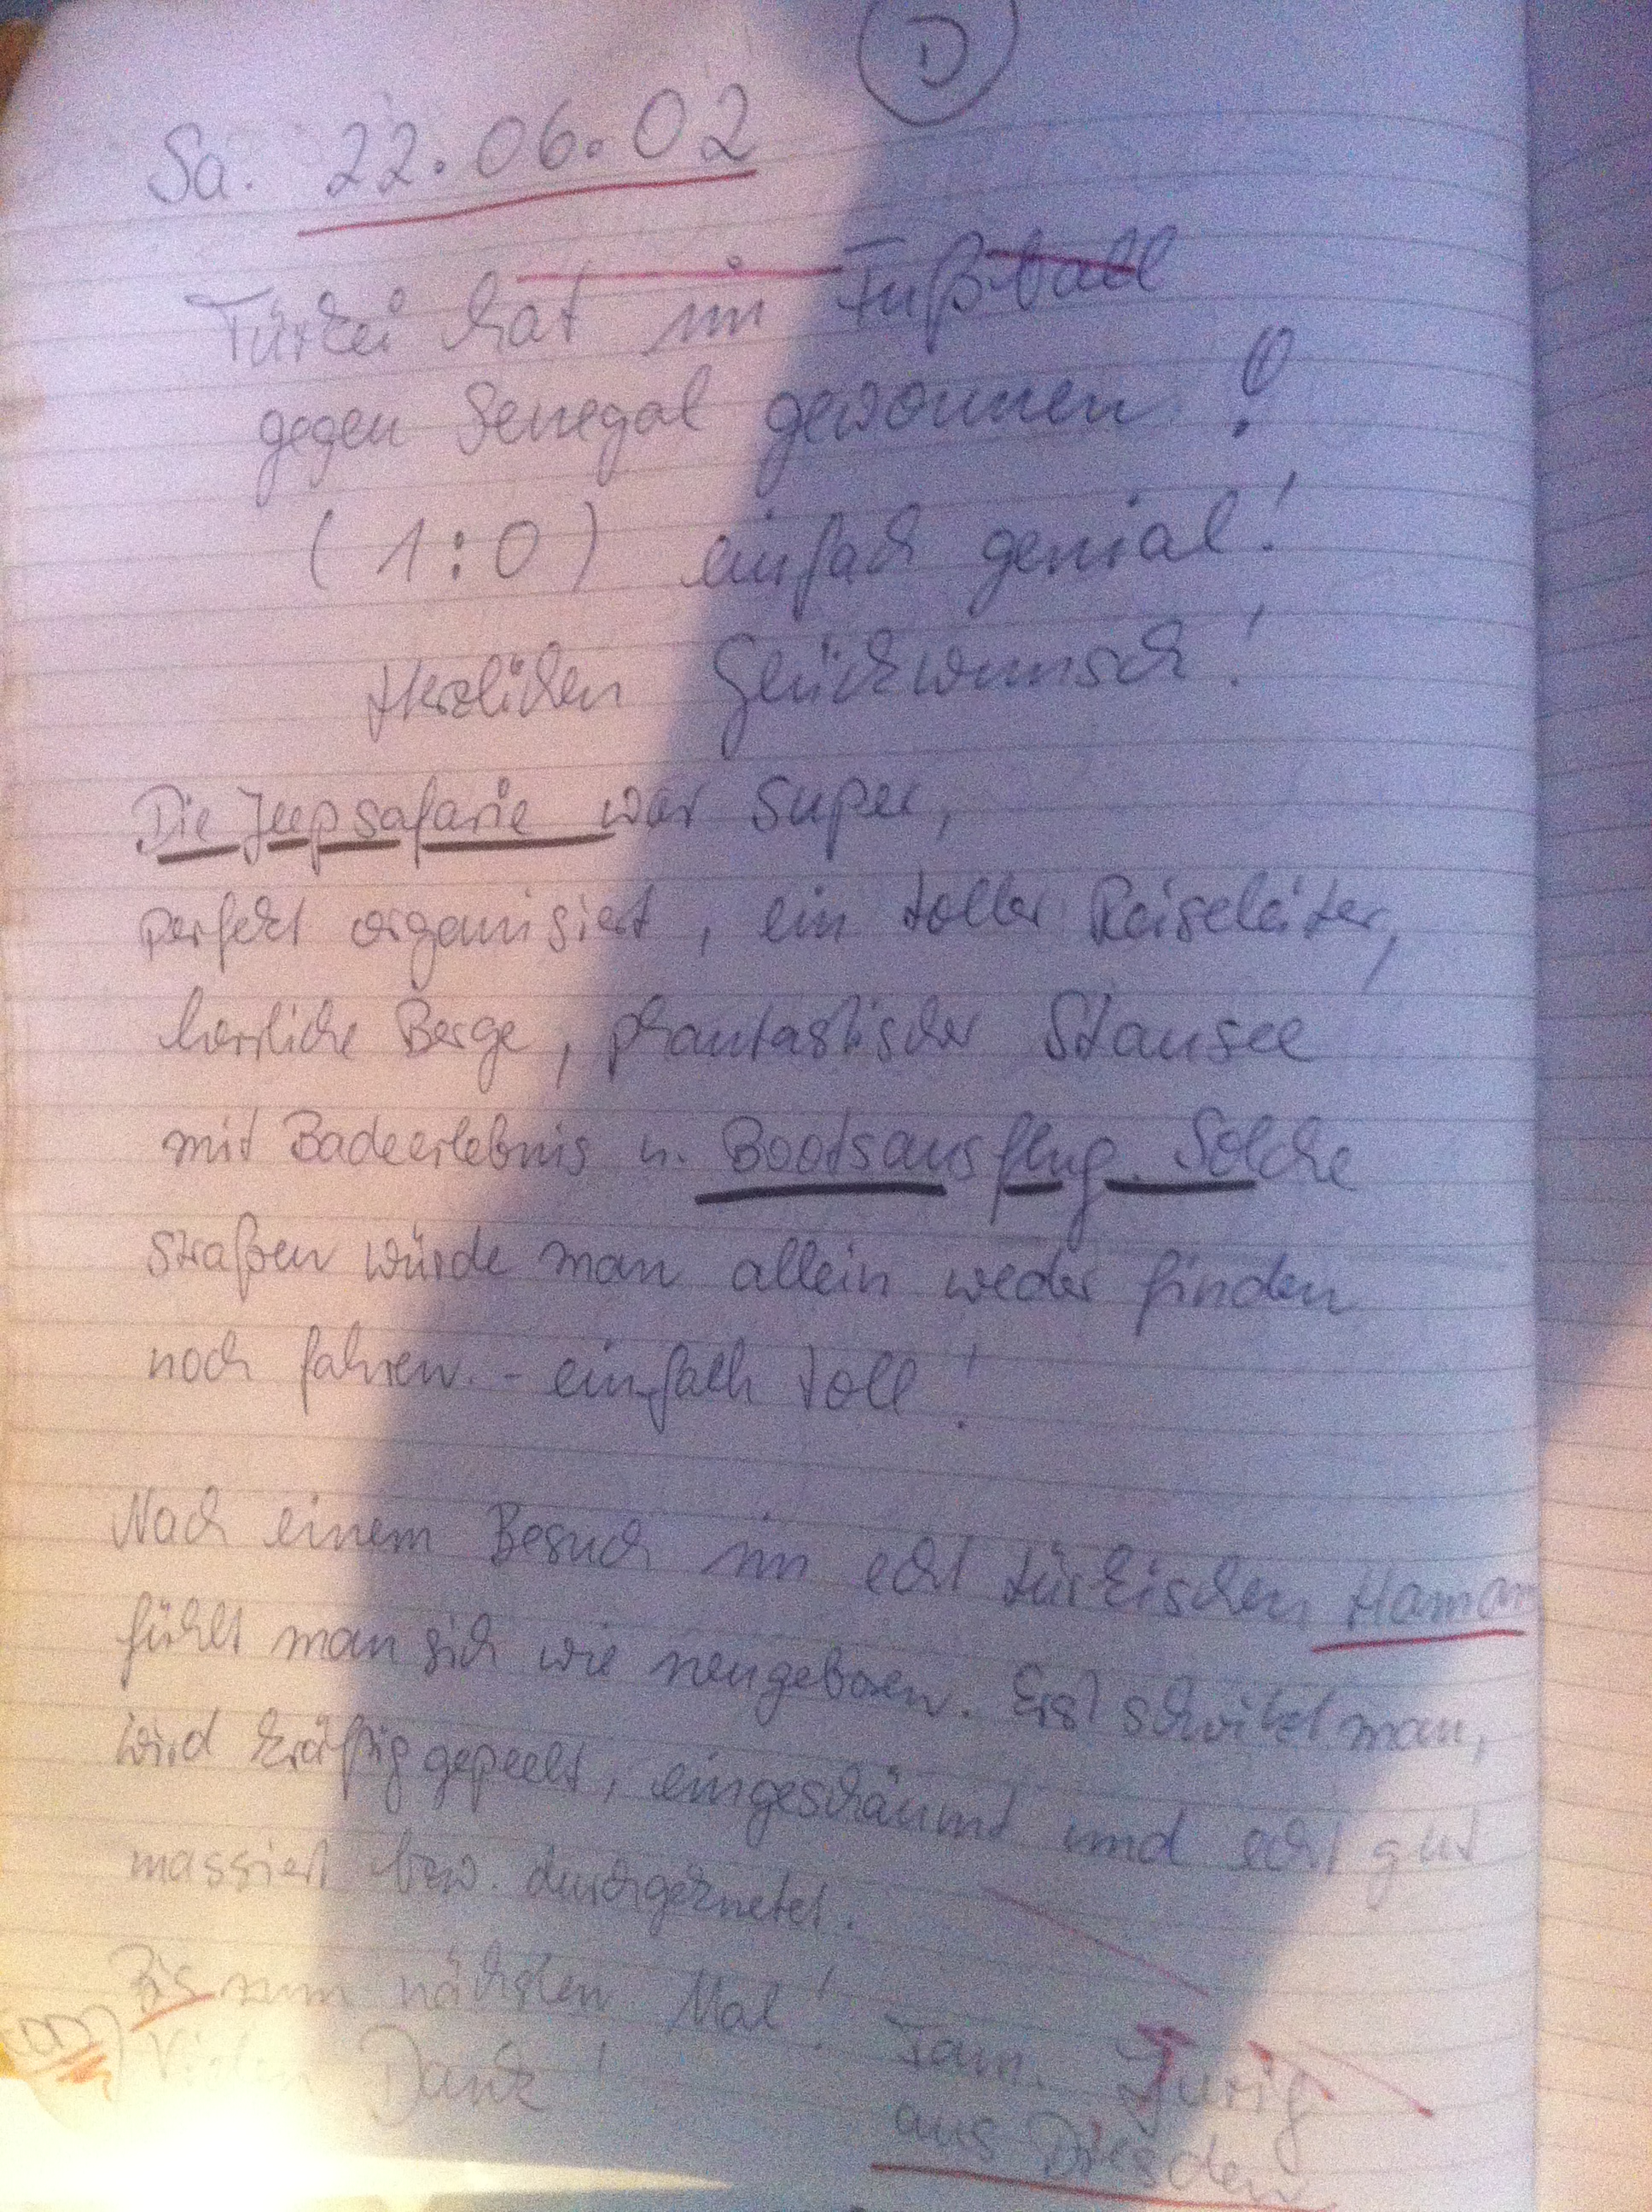 D
Sa. 22.06.02
Türkei hat im Fußball
gegen Senegal gewonnen!
(1:0) einfach genial!
Herzlichen Glückwunsch!
Die Jeepsafarie war super,
perfekt organisiert, ein toller Reiseleiter,
herrliche Berge, phantastischer Stausee
mit Badeerlebnis u. Bootsausflug. Solche
Straßen würde man allein weder finden
noch fahren. - einfach toll!
Nach einem Besuch im echt türkischen Hamam
fühlt man sich wie neugeboren. Erst schwitzt man,
wird kräftig gepeelt, eingeschäumt und echt gut
massiert bzw. durchgeknetet.
Bis zum nächsten Mal! Fam.
Vielen Dank!
aus Dresden